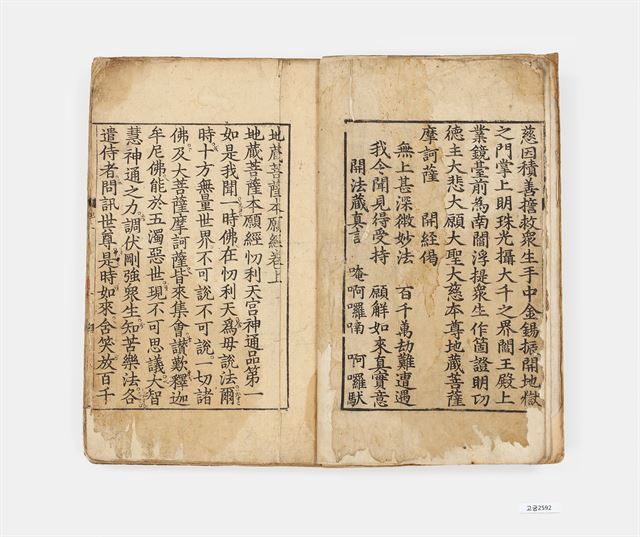 慈因積善誓救衆生手中金錫振開地獄
之門掌上明珠光攝大千之界閻王殿上
業鏡臺前為南閻浮提衆生作箇證明功
德主大悲大願大聖大慈本尊地藏菩薩
摩訶薩　開經偈
無上甚深微妙法　百千萬劫難遭遇
我今聞見得受持　願解如來真實意
開法藏真言　唵啊囉喃　啊囉馱
地蔵菩薩本願經卷上
地蔵菩薩本願經忉利天宮神通品第一
如是我聞一時佛在忉利天為母說法爾
時十方無量世界不可說不可說一切諸
佛及大菩薩摩訶薩皆來集會讃歎釋迦
牟尼佛能於五濁惡世現不可思議大智
慧神通之力調伏剛強衆生知苦樂法各
遣侍者問訊世尊是時如來含笑放百千
고궁2592